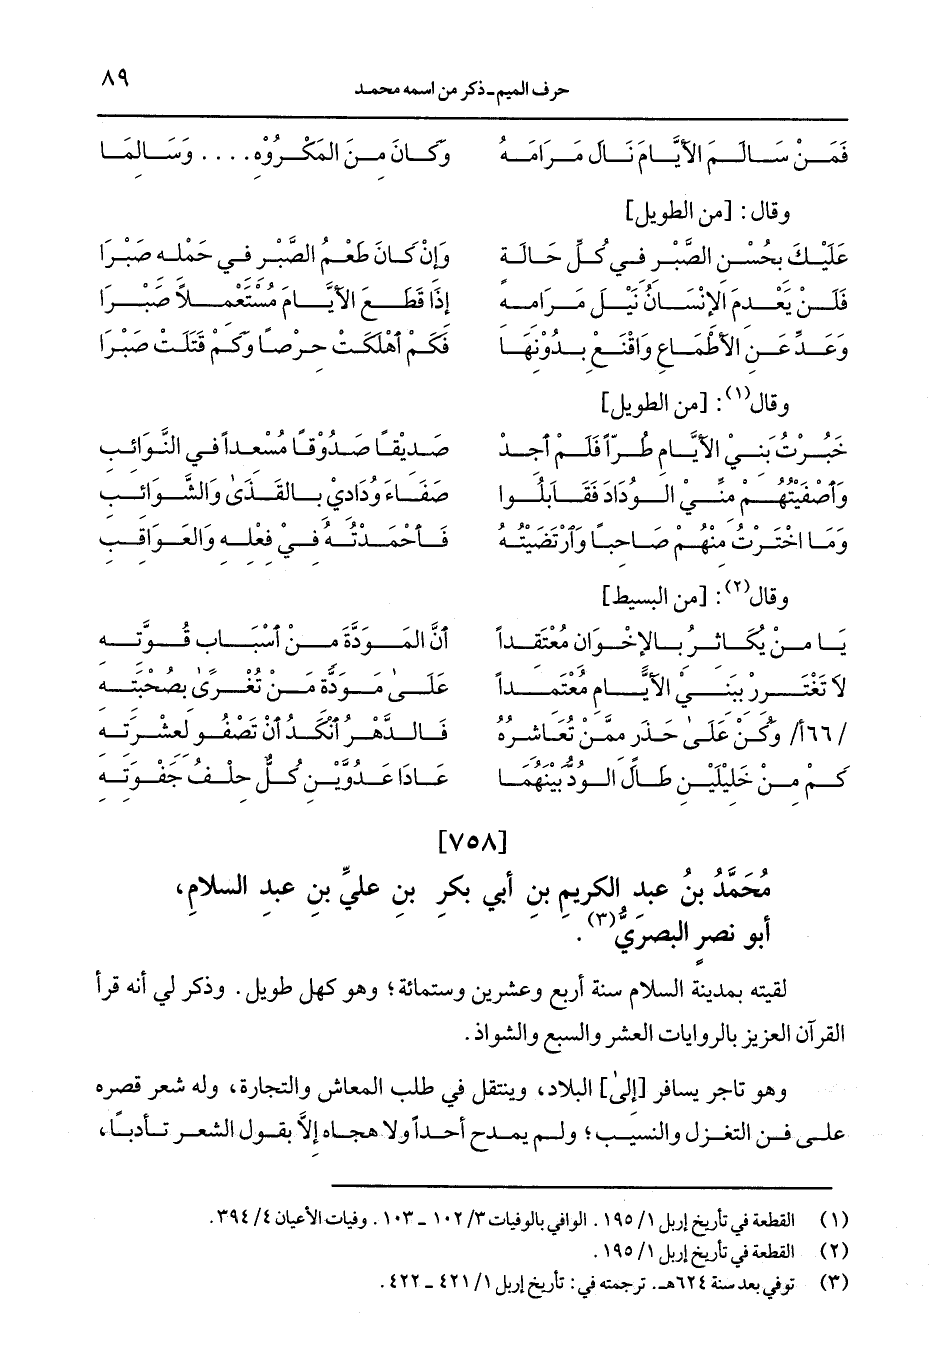 حرف الميم ـ ذكر من اسمه محمد ٨٩
فَمَنْ سَالَمَ الأيَّامَ نَالَ مَرَامَهُ وَكَانَ مِنَ المَكْرُوهِ .... وَسَالِمَا
وقال: [من الطويل]
عَلَيْكَ بِحُسْنِ الصَّبْرِ فِي كُلِّ حَالَةٍ وَإِنْ كَانَ طَعْمُ الصَّبْرِ فِي حَمْلِهِ صَبْرَا
فَلَنْ يَعْدِمَ الإِنْسَانُ نَيْلَ مَرَامِهِ إِذَا قَطَعَ الأَيَّامَ مُسْتَعْمِلاً صَبْرَا
وَعَدِّ عَنِ الأَطْمَاعِ وَاقْنَعْ بِدُونِهَا فَكَمْ أَهْلَكَتْ حِرْصاً وَكَمْ قَتَلَتْ صَبْرَا
وقال(١): [من الطويل]
خَبُرْتُ بَنِيْ الأَيَّامِ طُرّاً فَلَمْ أَجِدْ صَدِيْقاً صَدُوْقاً مُسْعِداً فِي النَّوَائِبِ
وَأَصْفَيْتُهُمْ مِنِّي الوِدَادَ فَقَابَلُوا صَفَاءَ وِدَادِيْ بِالقَذَىٰ وَالشَّوَائِبِ
وَمَا اخْتَرْتُ مِنْهُمْ صَاحِباً وَارْتَضَيْتُهُ فَأَحْمَدْتُهُ فِيْ فِعْلِهِ وَالعَوَاقِبِ
وقال(٢): [من البسيط]
يَا مَنْ يُكَاثِرُ بِالإِخْوَانِ مُعْتَقِداً أَنَّ المَوَدَّةَ مِنْ أَسْبَابِ قُوَّتِهِ
لا تَغْتَرِرْ بِبَنِيْ الأَيَّامِ مُعْتَمِداً عَلَىٰ مَوَدَّةِ مَنْ تُغْرَىٰ بِصُحْبَتِهِ
/١٦٦أ/ وَكُنْ عَلَىٰ حَذَرٍ مِمَّنْ تُعَاشِرُهُ فَالدَّهْرُ أَنْكَدُ أَنْ تَصْفُو لِعِشْرَتِهِ
كَمْ مِنْ خَلِيْلَيْنِ طَالَ الوُدُّ بَيْنَهُمَا عَادَا عَدُوَّيْنِ كُلٌّ حِلْفُ جَفْوَتِهِ
[٧٥٨]
مُحَمَّدُ بنُ عبدِ الكريمِ بنِ أبي بكرِ بنِ عليِّ بنِ عبدِ السلامِ،
أبو نصرٍ البصَريُّ(٣).
لقيته بمدينة السلام سنة أربع وعشرين وستمائة؛ وهو كهل طويل. وذكر لي أنه قرأ
القرآن العزيز بالروايات العشر والسبع والشواذ.
وهو تاجر يسافر [إلىٰ] البلاد، وينتقل في طلب المعاش والتجارة، وله شعر قصره
علىٰ فن التغزل والنسيب؛ ولم يمدح أحداً ولا هجاه إلاَّ بقول الشعر تأدباً،
(١) القطعة في تأريخ إربل ١/ ١٩٥. الوافي بالوفيات ٣/ ١٠٢ ـ ١٠٣. وفيات الأعيان ٤/ ٣٩٤.
(٢) القطعة في تأريخ إربل ١/ ١٩٥.
(٣) توفي بعد سنة ٦٢٤هـ. ترجمته في: تأريخ إربل ١/ ٤٢١ ـ ٤٢٢.